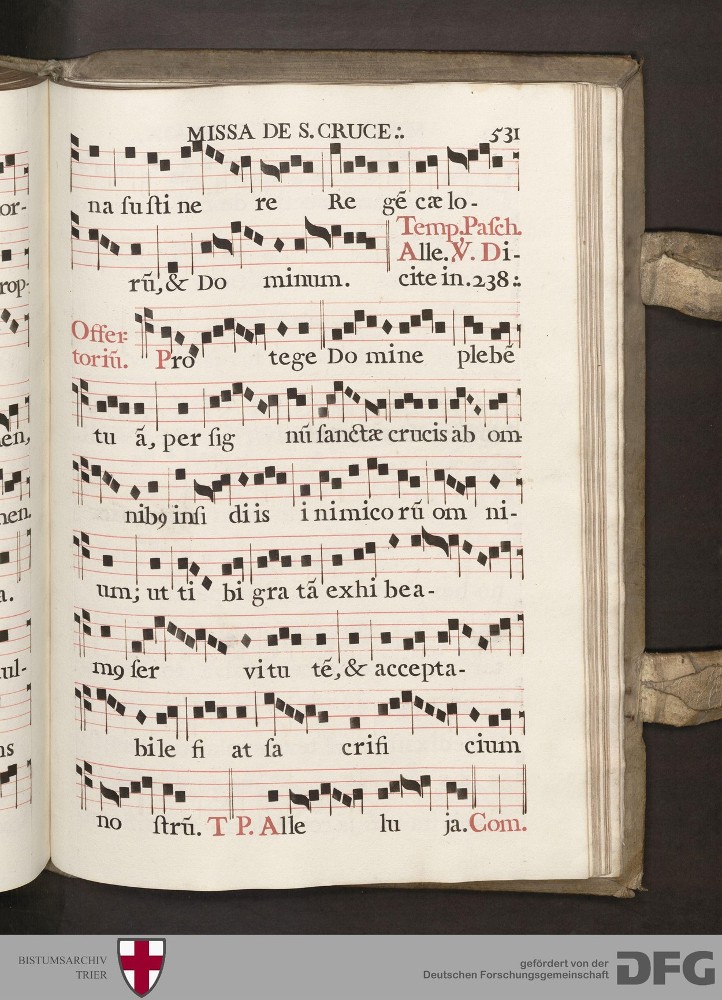 MISSA DE S. CRUCE.:. 531
na ſuſti ne re Re gē cæ lo-
Temp. Paſch.
Alle. V. Di-
rū, & Do minum. cite in. 238.:.
Offer-
toriū. Pro tege Do mine plebē
tu ā, per ſig nū ſanctæ crucis ab om-
nibꝯ inſi di is i nimico rū om ni-
um; ut ti bi gra tā exhi bea-
mꝯ ſer vi tu tē, & accepta-
bile fi at ſa crifi cium
no ſtrū. T P. Alle lu ja. Com.
or-
rop-
en,
nen.
a.
ul-
ns
BISTUMSARCHIV
TRIER
gefördert von der
Deutschen Forschungsgemeinschaft
DFG